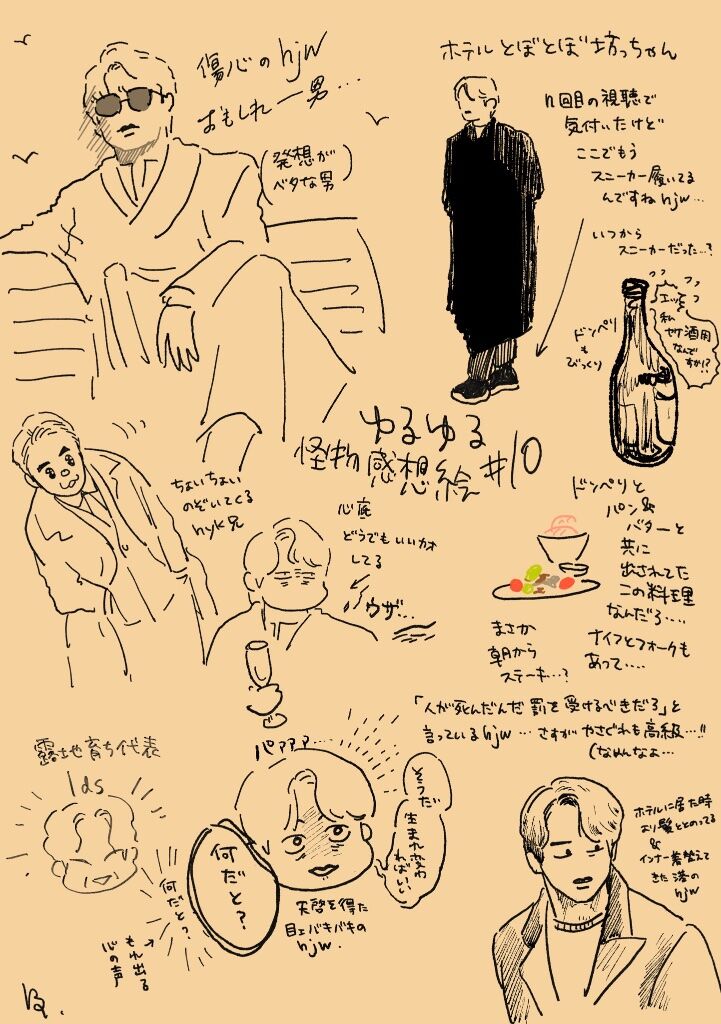 傷心のhjw
おもしれー男…
(発想が
ベタな男)
ホテルとぼとぼ坊っちゃん
n回目の視聴で
気付いたけど
ここでもう
スニーカー履いてる
んですねhjw…
いつから
スニーカーだった…?
ドンペリ
も
びっくり
エッ
私
ヤケ酒用
なんで
すか!?
ゆるゆる
怪物感想絵#10
ちょいちょい
のぞいてくる
hyk兄
心底
どうでもいいカオ
してる
ウザ…
ドンペリと
パン&
バターと
共に
出されてた
この料理
なんだろ….
ナイフとフォークも
あって….
まさか
朝から
ステーキ…?
「人が死んだんだ 罰を受けるべきだろ」と
言っているhjw…さすがやさぐれも高級…!!
(なめんなよ…
露地育ち代表
lds
何だと?
もれ出る
心の声
パァァァ…
何だと?
そうだ
生まれ変わ
ればいい
天啓を得た
目ェバキバキの
hjw.
ホテルに居た時
より髪ととのってる
&
インナー着替えて
きた港の
hjw